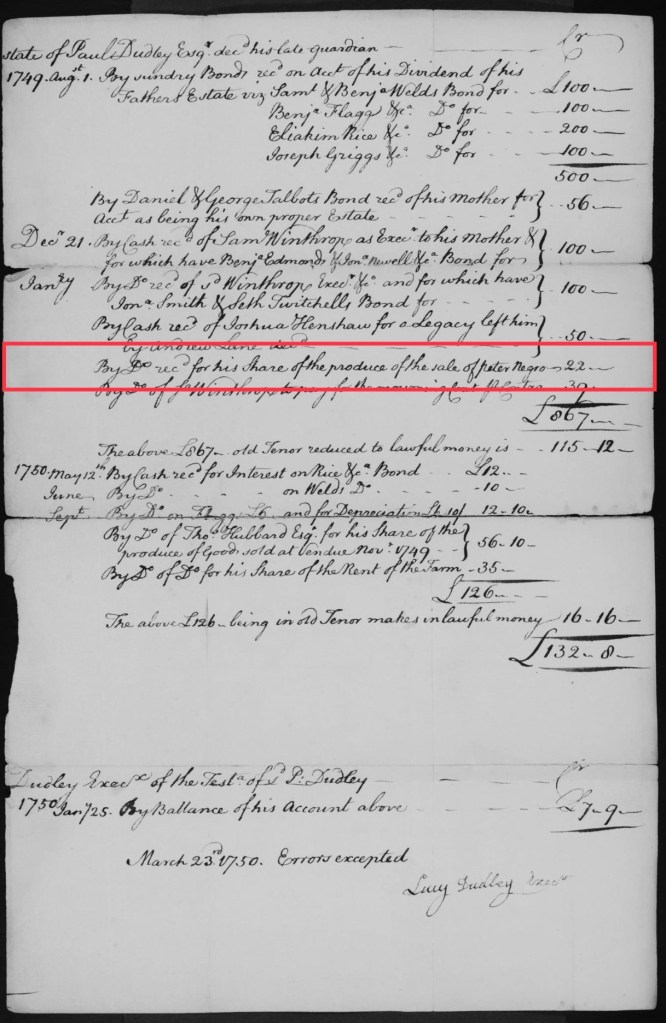 Cr
state of Paul Dudley Esqr. decd. his late guardian
1749. Augst. 1. By sundry Bonds recd. on Acct. of his Dividend of his
Fathers Estate viz Saml. & Benja. Welds Bond for - £100
Benja. Flagg &c. Do. for - 100
Eliakim Rice &c. Do. for - 200
Joseph Griggs &c. Do. for - 100
500
By Daniel & George Talbots Bond recd. of his Mother for } 56
Acct. as being his own proper Estate
Decr. 21. By Cash recd. of Saml. Winthrop as Execr. to his Mother & } 100
for which have Benja. Edmonds & Jona. Newell &c. Bond for
Janry. By Do. recd. of sd. Winthrop Execr. &c. and for which have } 100
Jona. Smith & Seth Twitchells Bond for
By Cash recd. of Joshua Henshaw for a Legacy left him } 50
By Andrew Lane decd.
By Do. recd. for his Share of the produce of the sale of peter Negro - 22
By Do. of Sl. Winthrop to pay for the mourning 39
£867
The above £867 old Tenor reduced to lawful money is 115 - 12
1750. May 12th. By Cash recd. for Interest on Rice &c. Bond £12
June By Do. on Welds Do. - 10
Sept. By Do. on Flagg £6 and for Depreciation 12 - 10
By Do. of Thos. Hubbard Esqr. for his Share of the } 56 - 10
produce of Goods sold at Vendue Novr. 1749
By Do. of Do. for his Share of the Rent of the Farm - 35
£126
The above £126 being in old Tenor makes in lawful money 16 - 16
£132 - 8
Dudley Execx. of the Testa. of sd. P: Dudley Cr
1750 Jany 25. By Ballance of his Account above £7 - 9
March 23rd. 1750. Errors excepted
Lucy Dudley Execx